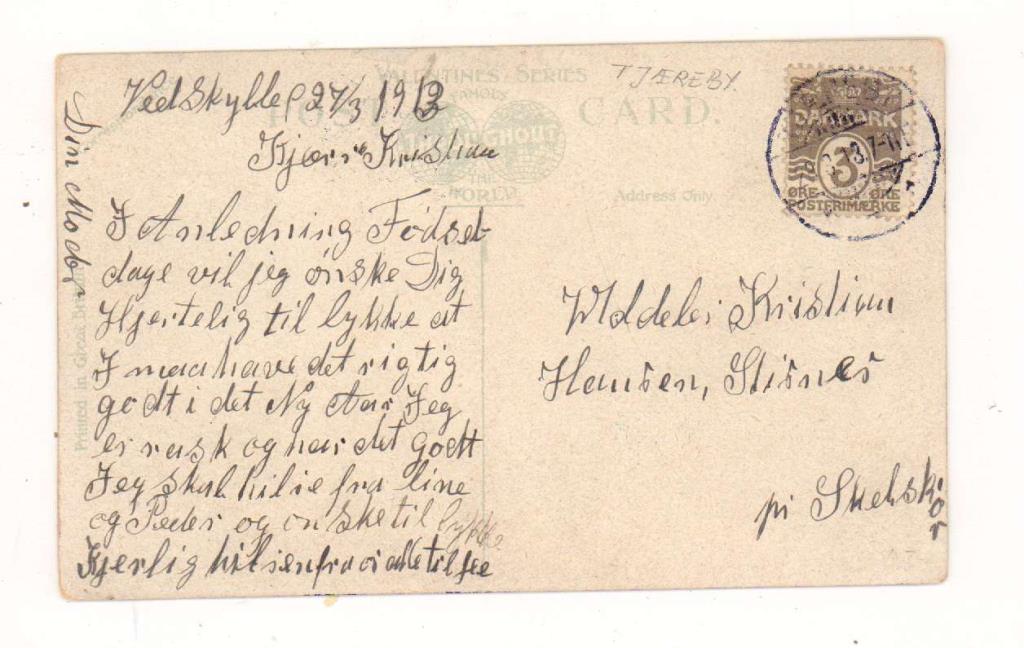 VALENTINES SERIES
TJÆREBY.
FAMOUS
POST CARD.
THROUGHOUT
THE
WORLD
Address Only.
Printed in Great Britain
DANMARK
3
ØRE ØRE
POSTFRIMÆRKE
Vedskylle 27/3 1913
Kjære Kristian
I Anledning Fødsel
dage vil jeg ønske Dig
Hjertelig til lykke at
I maa have det rigtig
godt i det Ny Aar Jeg
er rask og har det godt
Jeg skal hilse fra line
og Peder og ønske til lykke
Kjerlig hilsen fra os alle til jee
Din Moder
Kristian
Hansen, Stisnes
pr Skelskør